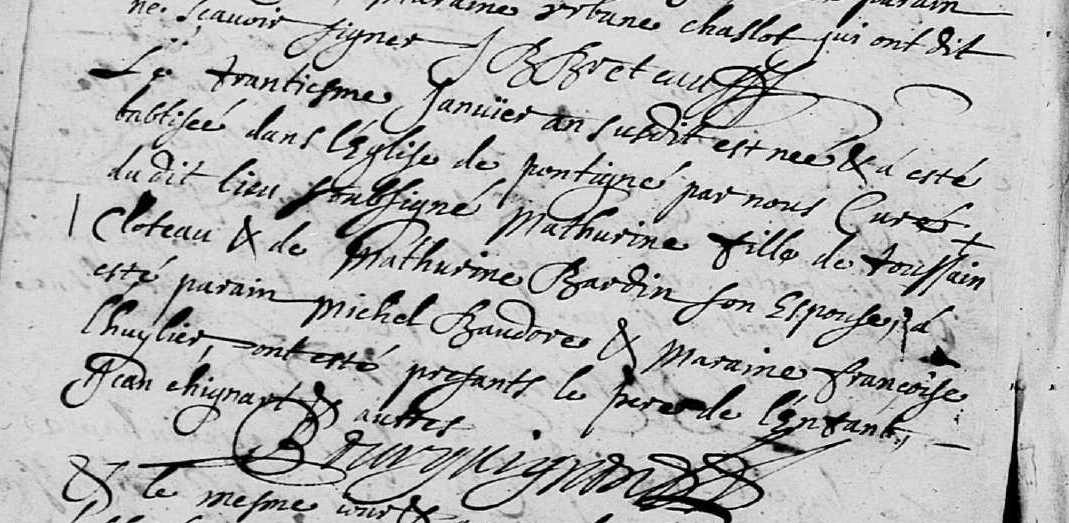 Maraine Urbane chaslot qui ont dit
ne sçavoir signer
Le trantiesme Janvier an susdit est neé & a esté
babtiseé dans l'Eglise de pontigné par nous Curé
dudit lieu soubsigné Mathurine fille de toussain
Cloteau & de Mathurine Bardin son Espouse, a
esté parain Michel Baudore & Maraine françoise
lhuylier, ont esté presants le pere de l'Enfant,
Jean chignart & autres
Bourguignon
& Le mesme iour &